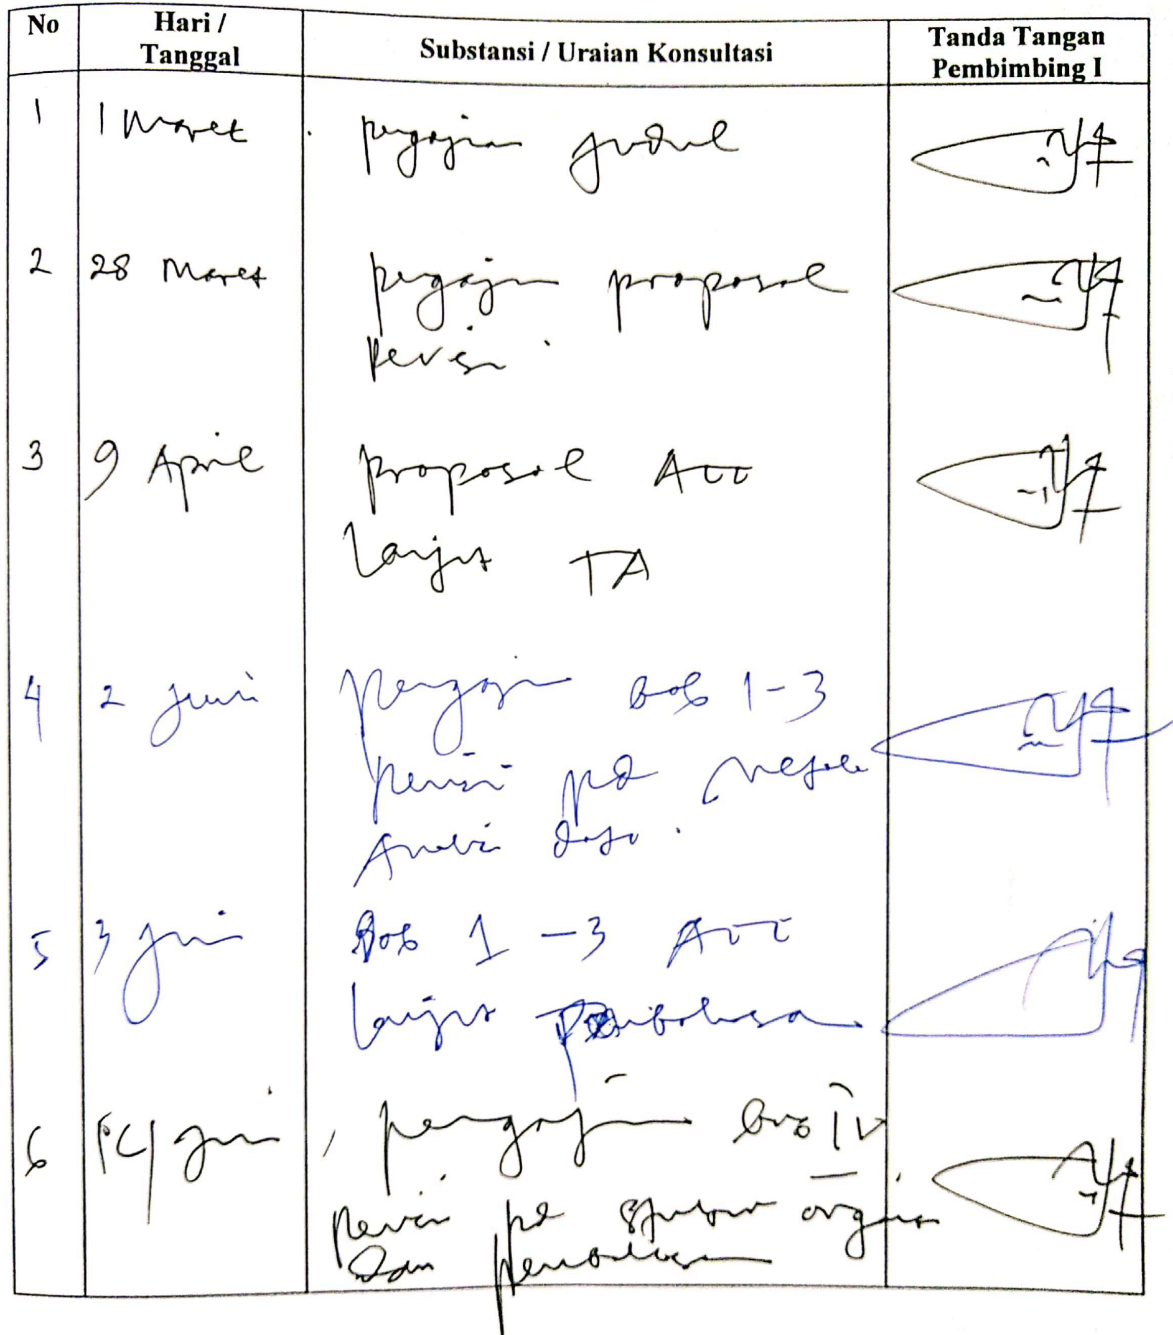 No
Hari /
Tanggal
Substansi / Uraian Konsultasi
Tanda Tangan
Pembimbing I
1
1 Maret
pengajuan judul
2
28 Maret
pengajuan proposal
revisi
3
9 April
proposal Acc
lanjut TA
4
2 Juni
pengajuan bab 1-3
revisi pd
Analisis data.
5
3 Juni
Bab 1 - 3 Acc
lanjut Pembahasan
6
Juni
pengajuan bab IV
revisi pd struktur organisasi
dan pembahasan